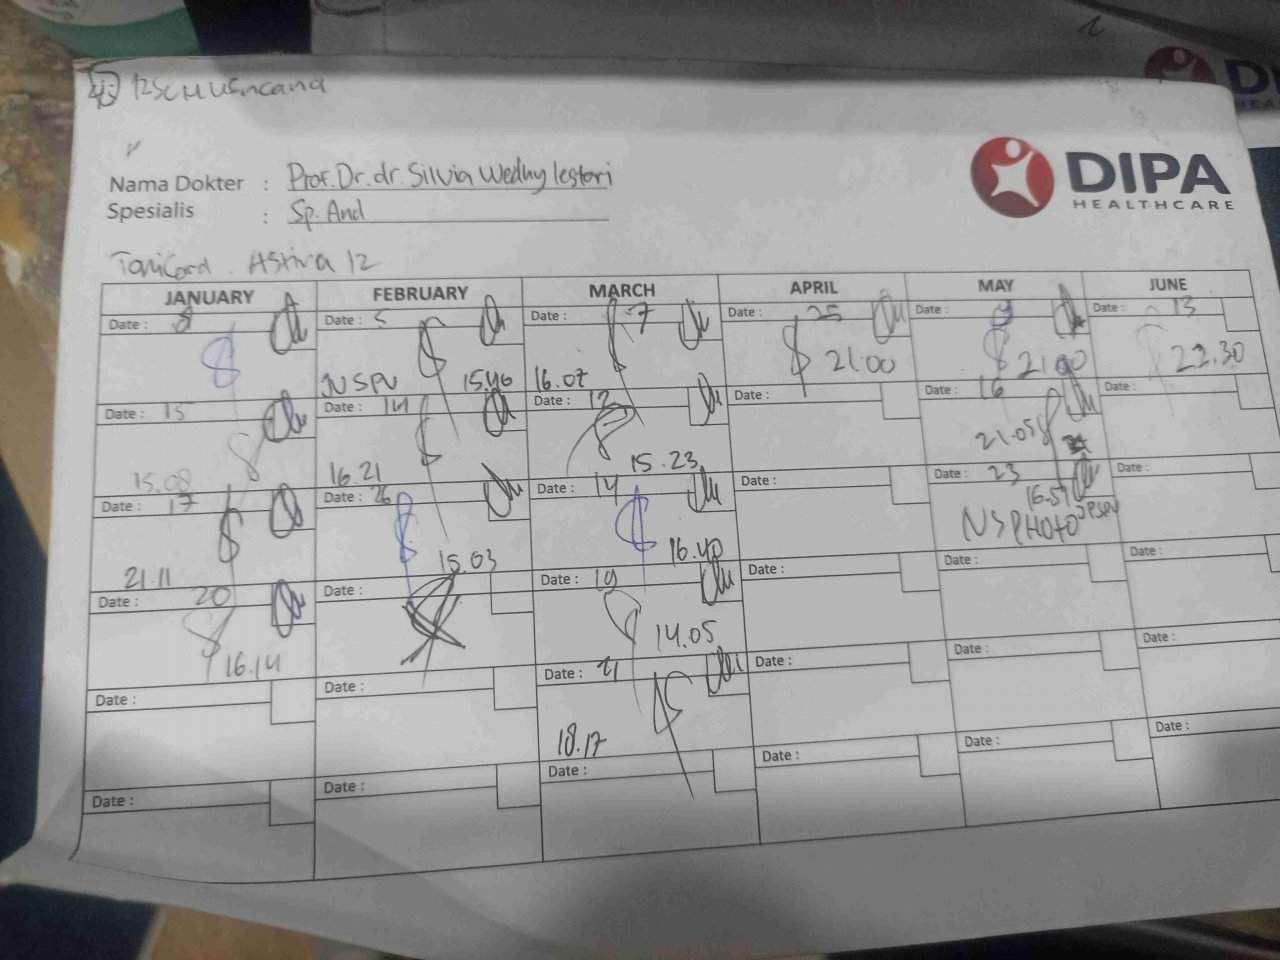 DIPA
HEALTHCARE
Nama Dokter : Prof. Dr. dr. Silvia Wedhy lestari
Spesialis : Sp. And
Astina 12
JANUARY FEBRUARY MARCH APRIL MAY JUNE
Date : 8 Date : 5 Date : 7 Date : 25 Date : 9 Date : 13
NSPV 15.40 16.07 21.00 21.00 22.30
Date : 15 Date : 14 Date : 12 Date : Date : 16 Date :
15.08 16.21 15.23 21.05
Date : 17 Date : 26 Date : 14 Date : Date : 23 Date :
21.11 15.03 16.40 16.51 NSPHOTO
Date : 20 Date : Date : 19 Date : Date : Date :
16.14 14.05
Date : Date : Date : 21 Date : Date : Date :
18.17
Date : Date : Date : Date : Date : Date :